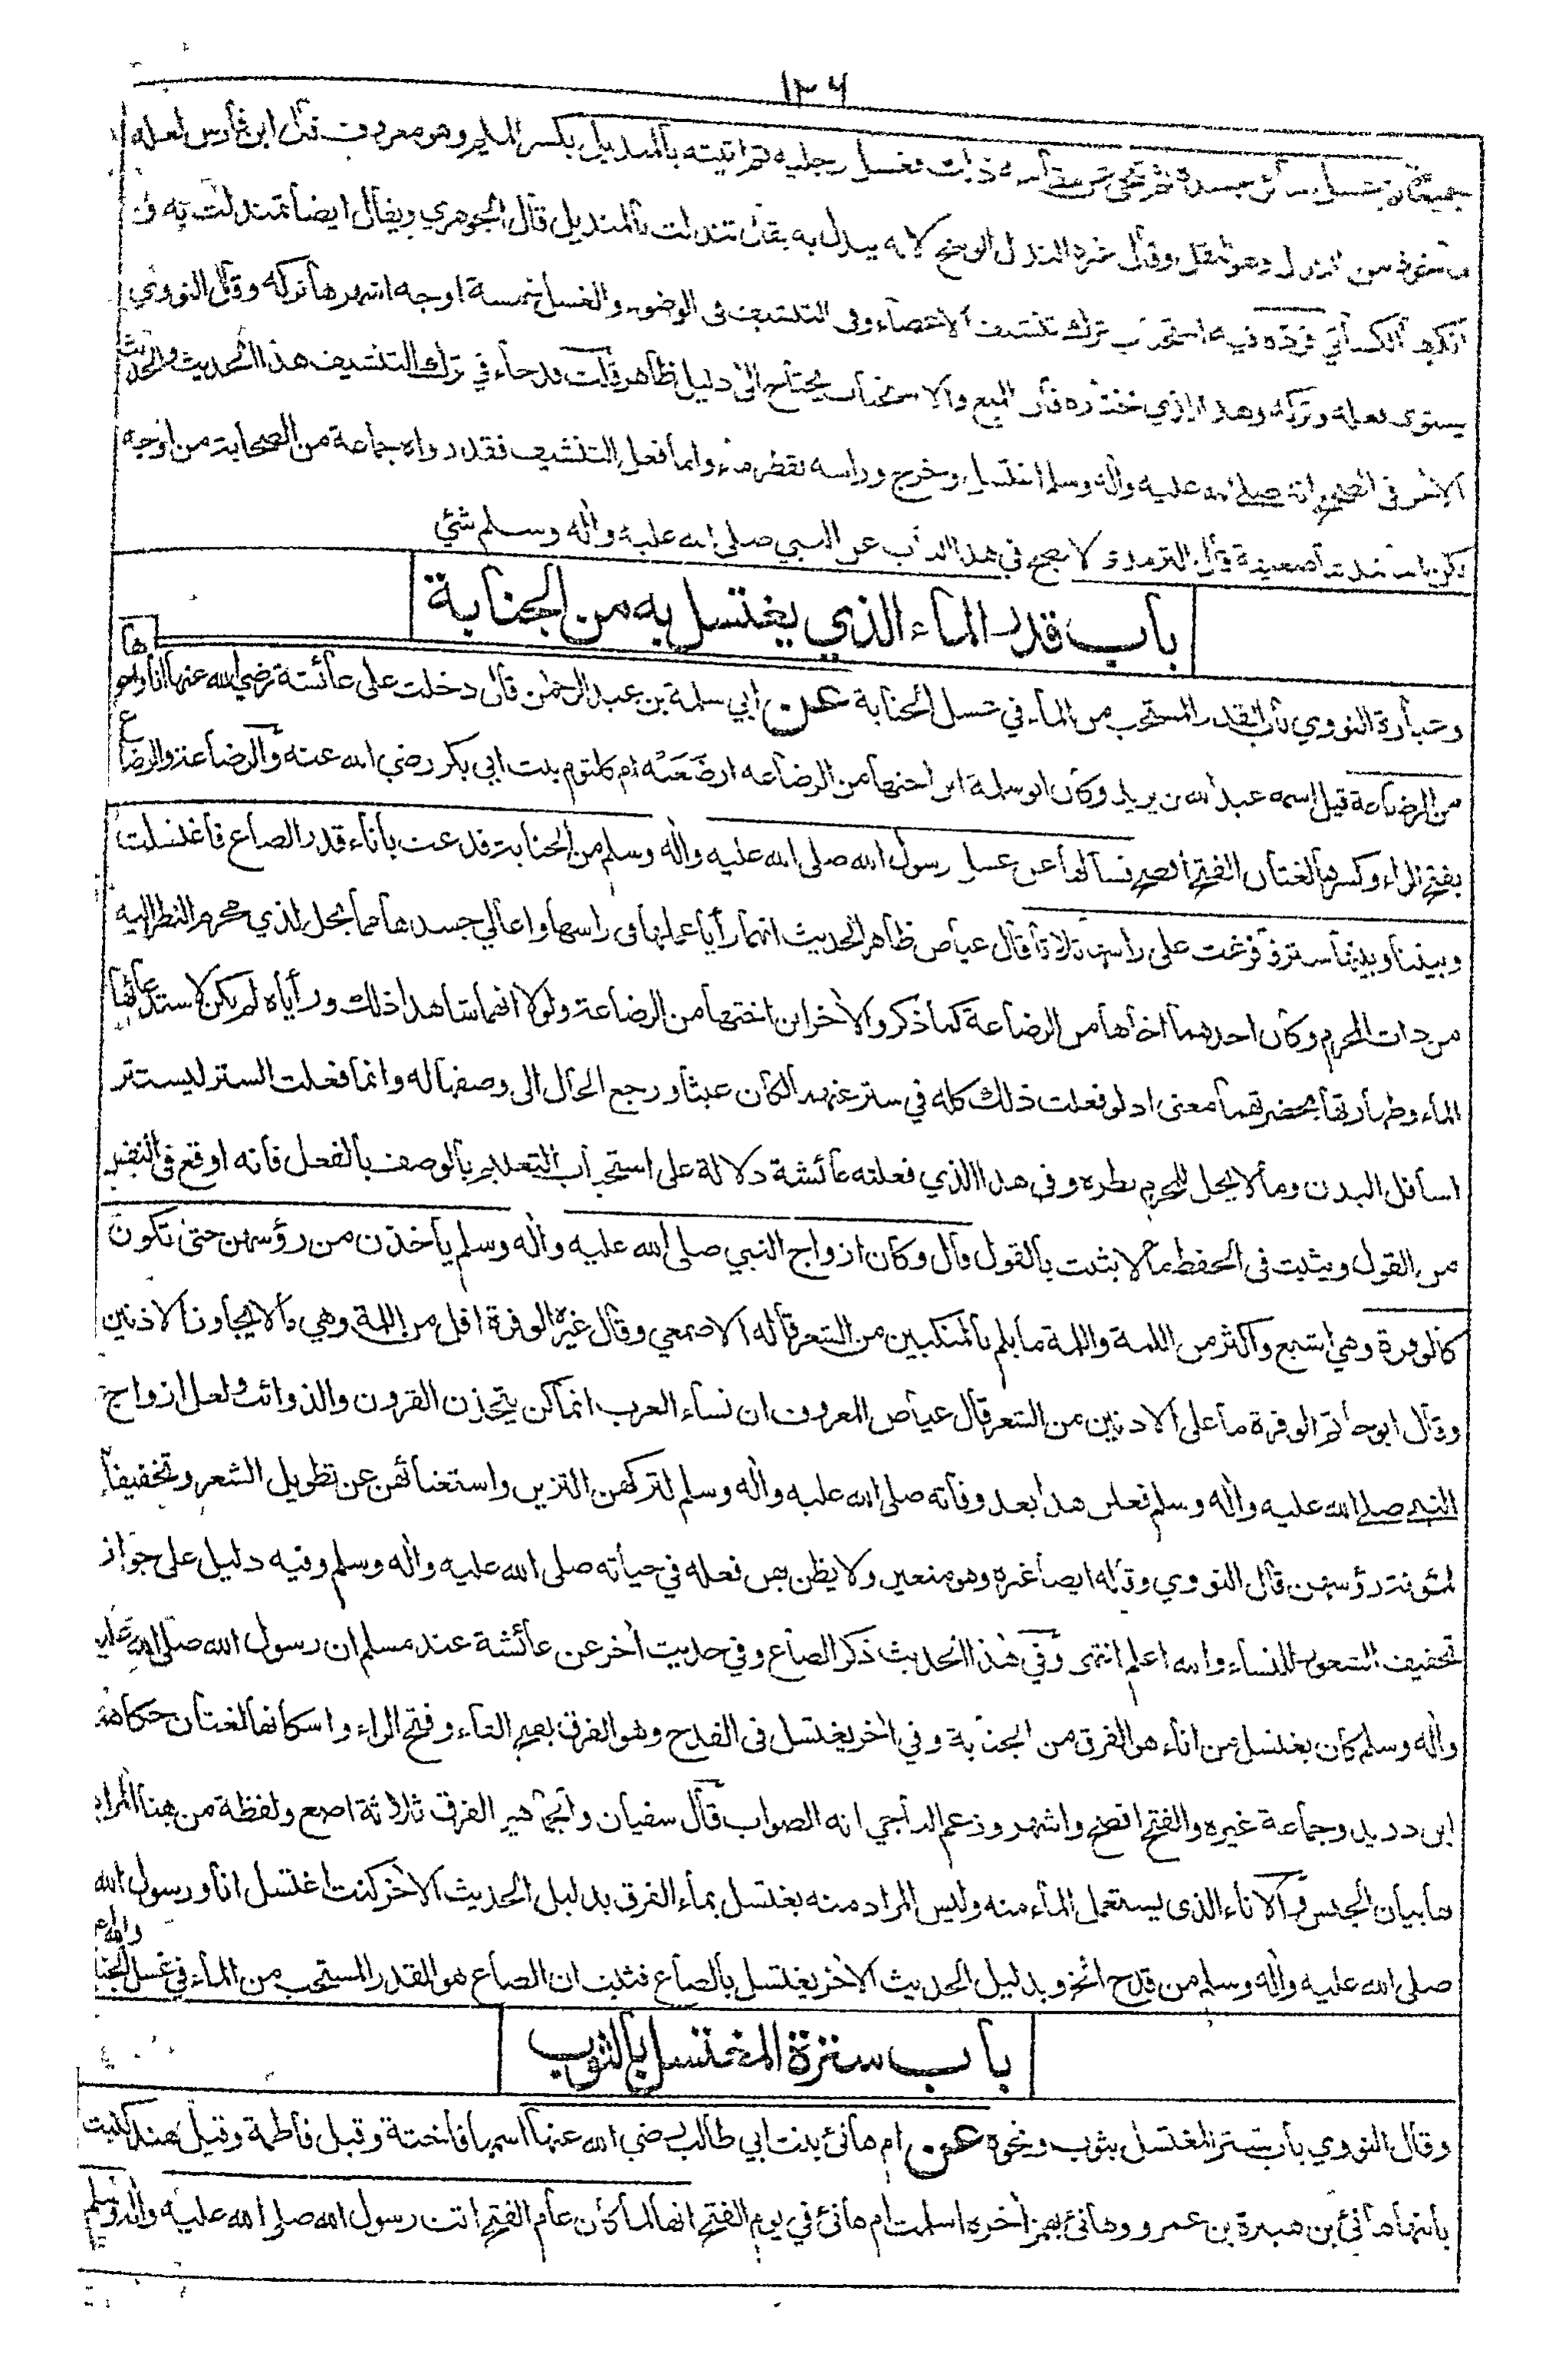 ١٣٦
جميعا ثم غسل سائر جسده ثم تنحى عن مقامه ذلك فغسل رجليه ثم اتيته بالمنديل بكسر الميم وهو معروف قال ابن فارس لعله
ماخوذ من الندل وهو النقل وقال غيره الندل الوسخ لانه يندل به يقال تندلت بالمنديل قال الجوهري ويقال ايضا تمندلت به
انكرها الكسائي فرده فيه استحباب ترك تنشيف الاعضاء وفى التنشيف فى الوضوء والغسل خمسة اوجه اشهرها تركه وقال النووي
يستوى فعله وتركه وهذا الذي نختاره فان المنع والاستحباب يحتاج الى دليل ظاهر قلت قد جاء في ترك التنشيف هذا الحديث والحديث
الاخر فى الصحيح انه صلى الله عليه واله وسلم اغتسل وخرج وراسه يقطر ماء واما فعل التنشيف فقد رواه جماعة من الصحابة من اوجه
لكن اسانيدها ضعيفة قال الترمذي لا يصح في هذا الباب عن النبي صلى الله عليه واله وسلم شئ
باب قدر الماء الذي يغتسل به من الجنابة
وعبارة النووي باب القدر المستحب من الماء في غسل الجنابة عن ابي سلمة بن عبد الرحمن قال دخلت على عائشة رضي الله عنها انا واخوها
من الرضاعة قيل اسمه عبد الله بن يزيد وكان ابو سلمة ابن اختها من الرضاعة ارضعته ام كلثوم بنت ابي بكر رضي الله عنه والرضاعة والرضاع
بفتح الراء وكسرها لغتان الفتح افصح فسالها عن غسل رسول الله صلى الله عليه واله وسلم من الجنابة فدعت باناء قدر الصاع فاغتسلت
وبيننا وبينها ستر فافرغت على راسها ثلاثا قال عياض ظاهر الحديث انهما رأيا عملها فى راسها واعالي جسدها مما يحل لذي محرم النظر اليه
من ذات المحرم وكان احدهما اخاها من الرضاعة كما ذكر والاخر ابن اختها من الرضاعة ولولا انهما شاهدا ذلك ورأياه لم يكن لاستدعائها
الماء وطهارتها بحضرتهما معنى اذ لو فعلت ذلك كله في ستر عنهما لكان عبثا ورجع الحال الى وصفها له وانما فعلت الستر ليستتر
اسافل البدن وما لا يحل للمحرم نظره وفي هذا الذي فعلته عائشة دلالة على استحباب التعليم بالوصف بالفعل فانه اوقع فى النفس
من القول ويثبت فى الحفظ ما لا يثبت بالقول قال وكان ازواج النبي صلى الله عليه واله وسلم يأخذن من رؤسهن حتى تكون
كالوفرة وهي اشبع واكثر من اللمة واللمة ما يلم بالمنكبين من الشعر قاله الاصمعي وقال غيره الوفرة اقل من اللمة وهي مالا يجاوز الاذنين
وقال ابو حاتم الوفرة ما على الاذنين من الشعر قال عياض المعروف ان نساء العرب انما كن يتخذن القرون والذوائب ولعل ازواج
النبي صلى الله عليه واله وسلم فعلن هذا بعد وفاته صلى الله عليه واله وسلم لتركهن التزين واستغنائهن عن تطويل الشعر وتخفيفا
لمئونة رؤسهن قال النووي وقاله ايضا غيره وهو متعين ولا يظن بهن فعله في حياته صلى الله عليه واله وسلم وفيه دليل على جواز
تخفيف الشعور للنساء والله اعلم انتهى وفي هذا الحديث ذكر الصاع وفي حديث اخر عن عائشة عند مسلم ان رسول الله صلى الله عليه
واله وسلم كان يغتسل من اناء هو الفرق من الجنابة وفي اخر يغتسل فى القدح وهو الفرق بفتح الفاء وفتح الراء واسكانها لغتان حكاها
ابن دريد وجماعة غيره والفتح افصح واشهر وزعم الباجي انه الصواب قال سفيان والجماهير الفرق ثلاثة اصع ولفظة من هنا المراد
ها بيان الجنس والاناء الذى يستعمل الماء منه وليس المراد منه يغتسل بماء الفرق بدليل الحديث الاخر كنت اغتسل انا ورسول الله
صلى الله عليه واله وسلم من قدح الخ وبدليل الحديث الاخر يغتسل بالصاع فثبت ان الصاع هو القدر المستحب من الماء في غسل الجنابة
باب سترة المغتسل بالثوب
وقال النووي باب تستر المغتسل بثوب ونحوه عن ام هانئ بنت ابي طالب رضي الله عنها اسمها فاختة وقيل فاطمة وقيل هند كنيت
بابنها هانئ بن هبيرة بن عمرو وهانئ بهمز اخره اسلمت ام هانئ في يوم الفتح انها لما كان عام الفتح اتت رسول الله صلى الله عليه واله وسلم